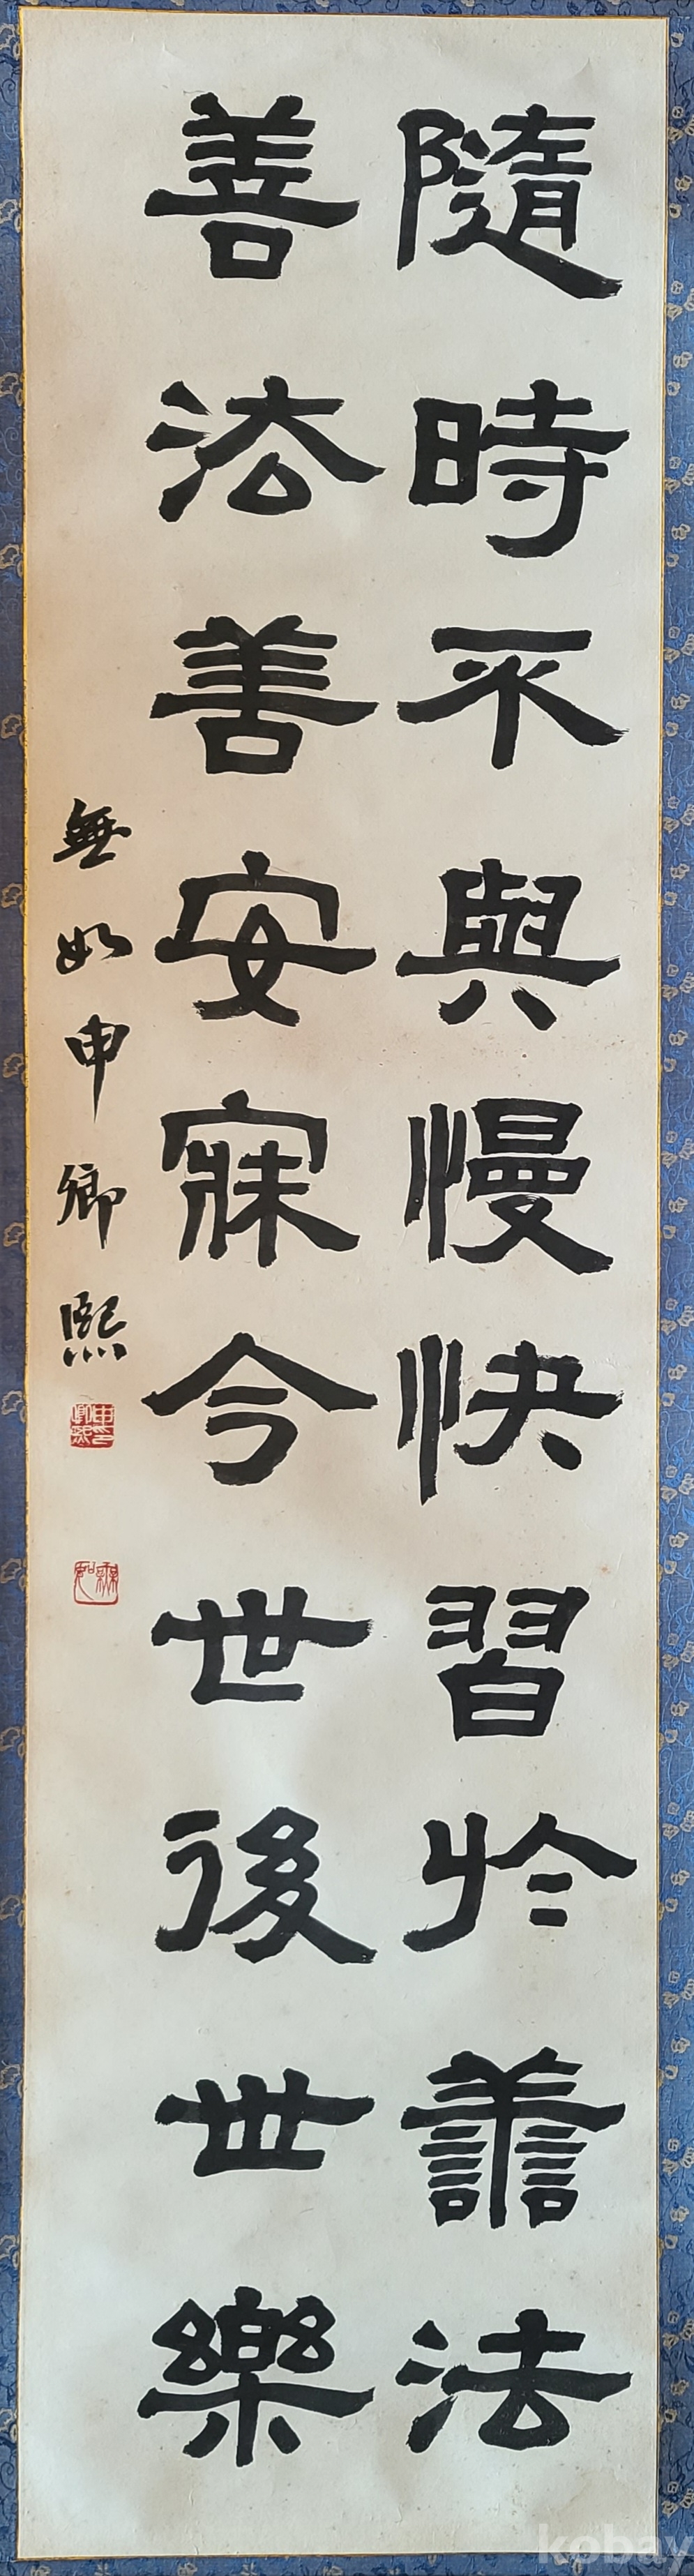 隨時不與慢快習於善法
善法善安寐今世後世樂
無如申卿熙
申卿熙印
無如
kobay